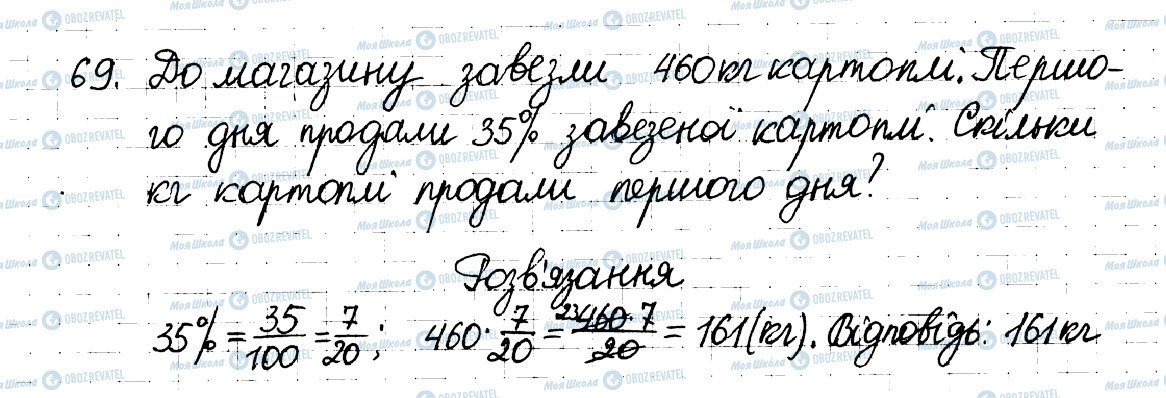 69. До магазину завезли 460 кг картоплі. Першо-
го дня продали 35% завезеної картоплі. Скільки
кг картоплі продали першого дня?
Розв'язання
35% = 35/100 = 7/20; 460 · 7/20 = 23 460 · 7/20 = 161 (кг). Відповідь: 161 кг.